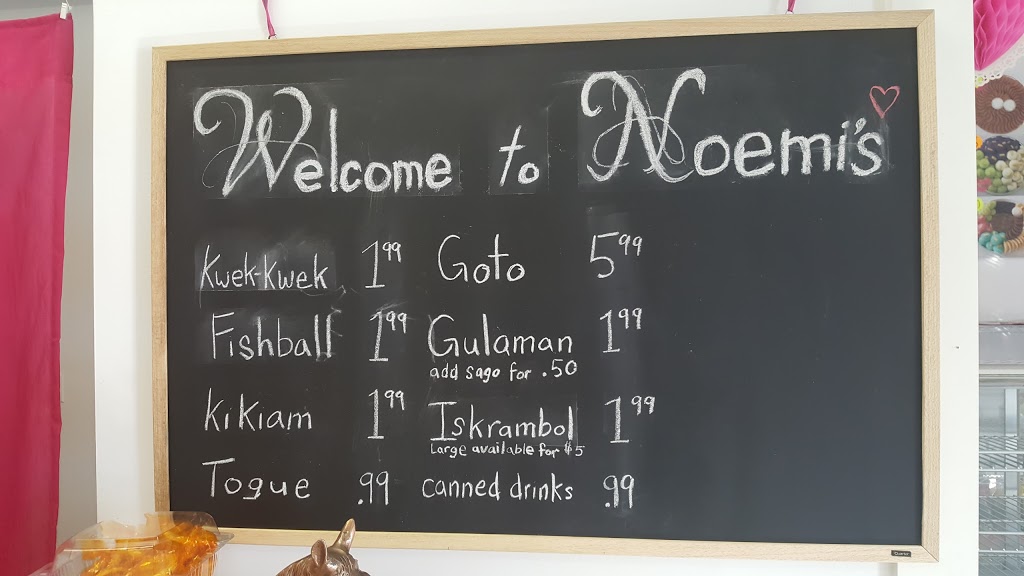 Welcome to Noemi's
Kwek-Kwek 1.99
Goto 5.99
Fishball 1.99
Gulaman 1.99
add sago for .50
Kikiam 1.99
Iskrambol 1.99
Large available for $5
Togue .99
canned drinks .99